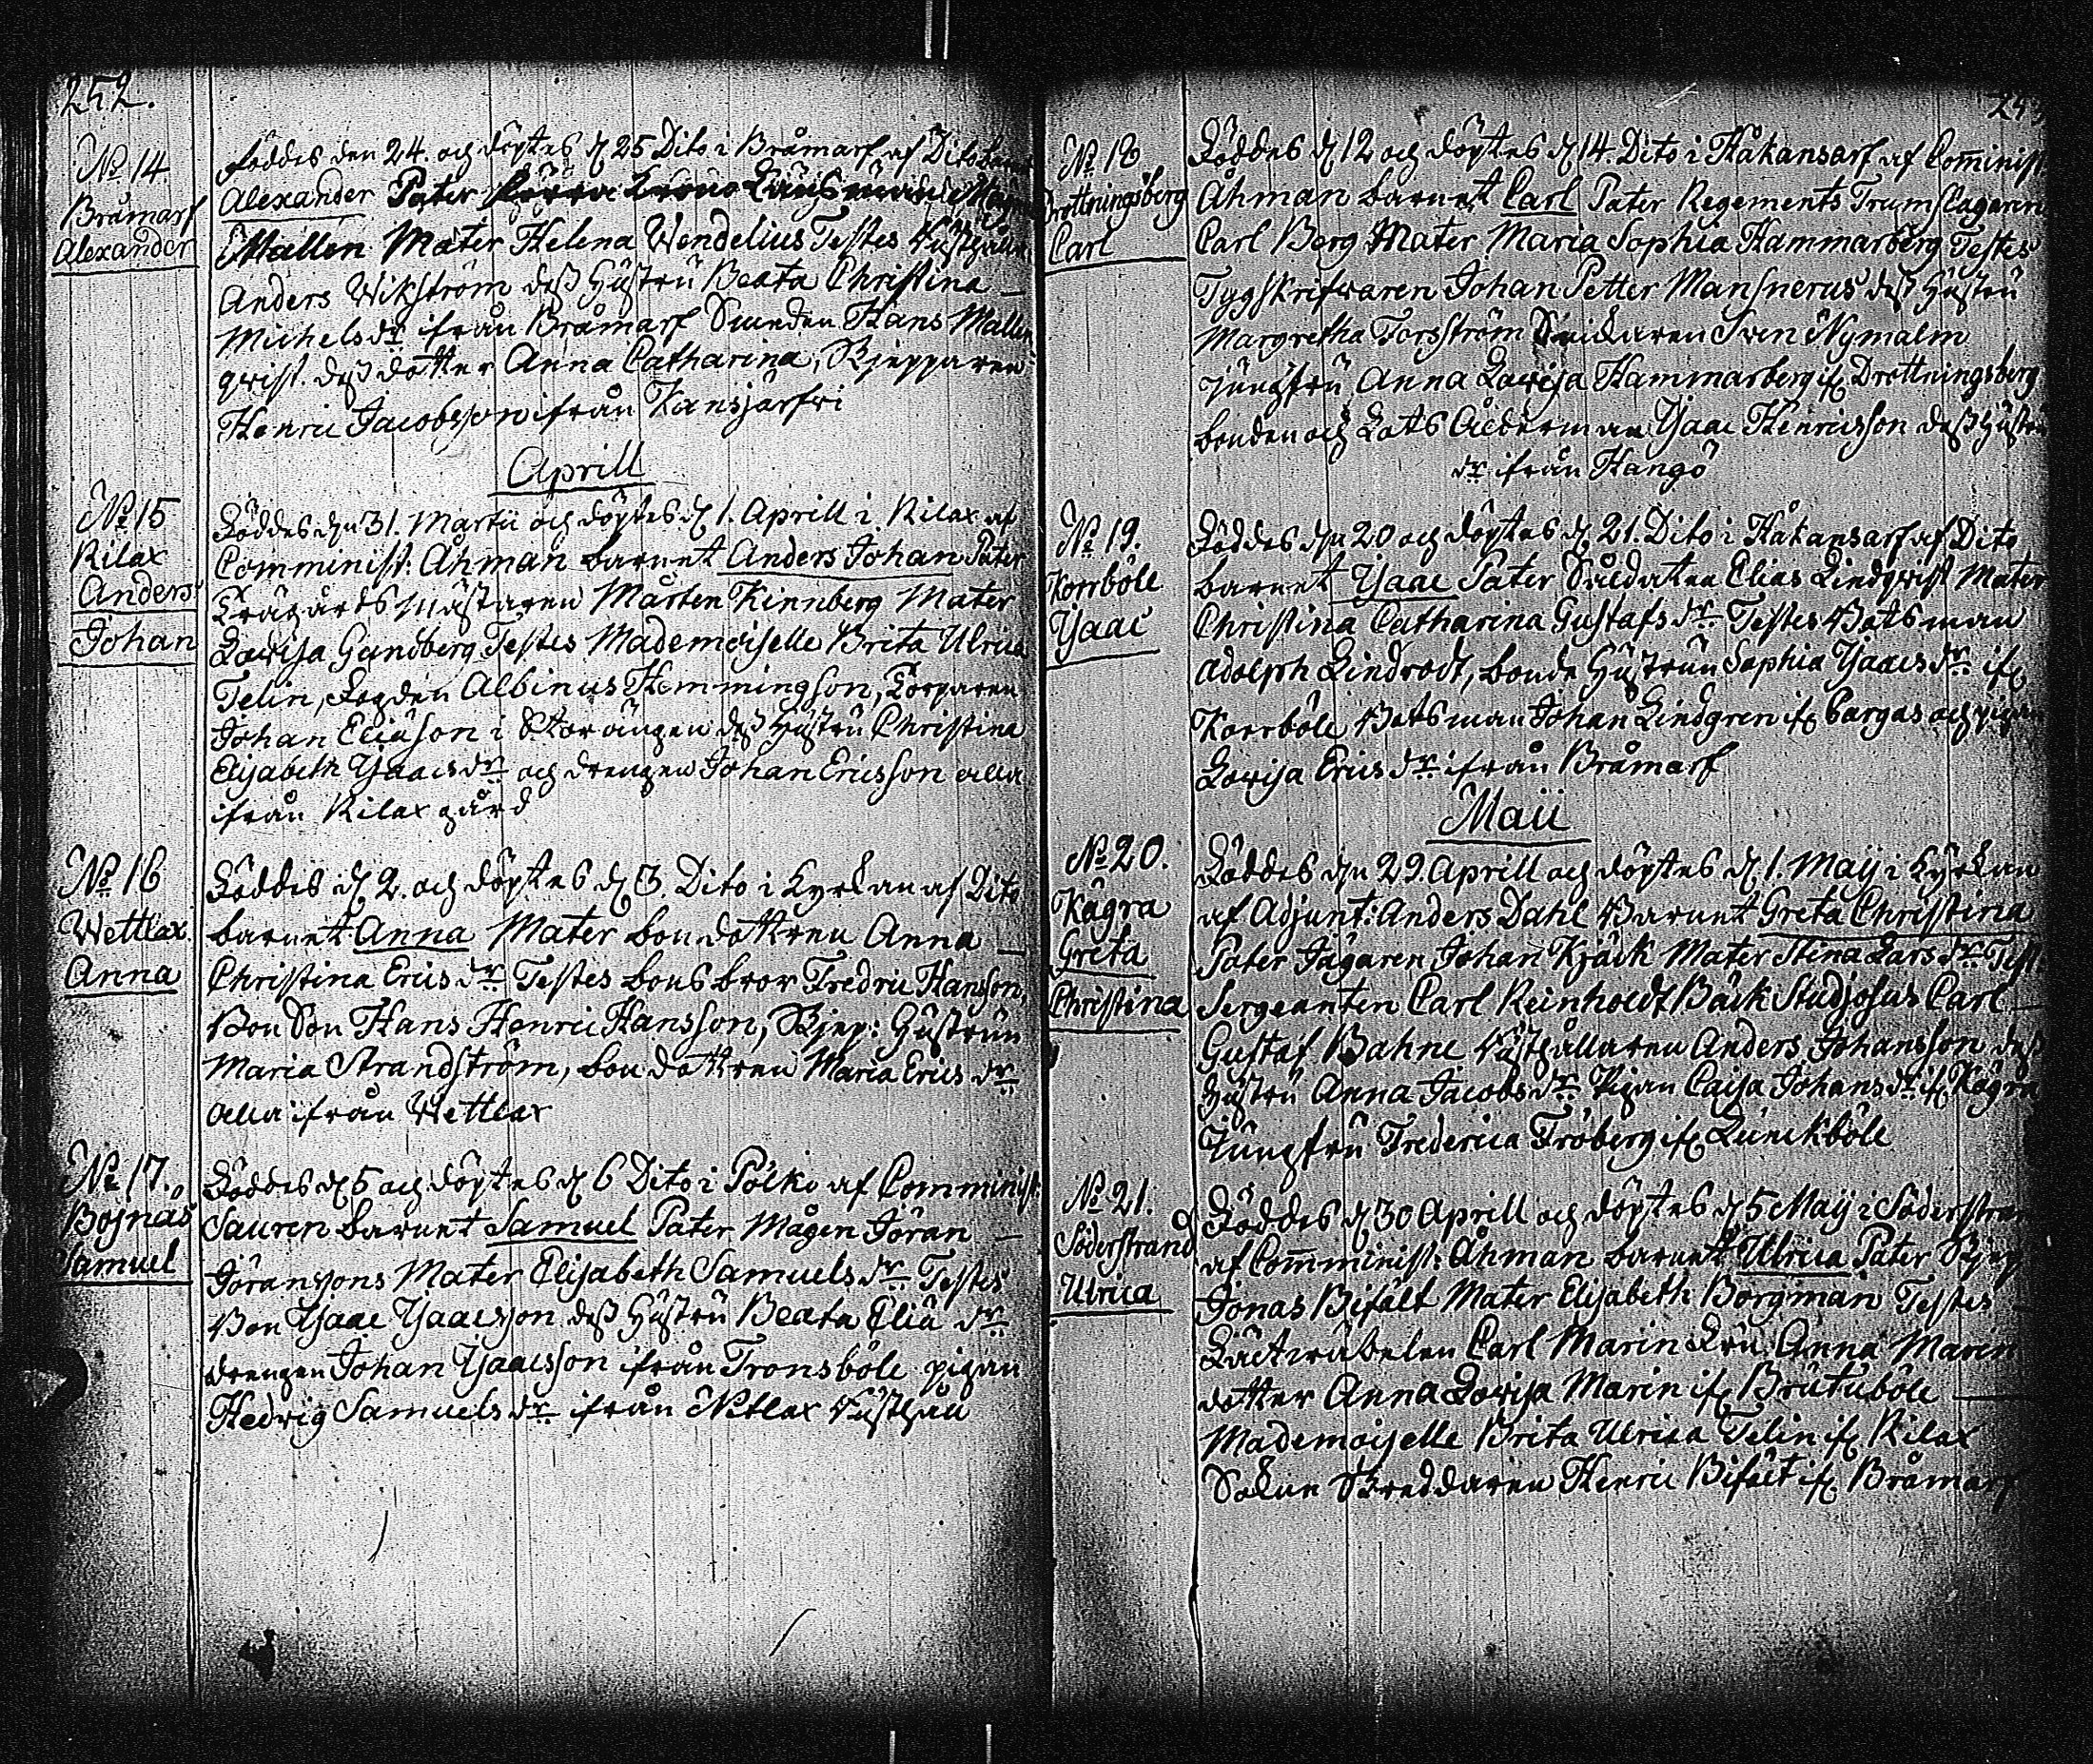 252.
No 14
Bråmarf
Alexander
Föddes den 24. och döptes d 25 Dito i Bråmarf af Dito
Alexander Pater
Mallen Mater Helena Wendelius Testes
Anders Wikström dess Hustru Beata Christina
Michelsdr ifrån Bråmarf Smeden Hans Mallen
qvist dess dotter Anna Catharina, Skepparen
Henric Jacobsson ifrån Kansjärfvi
Aprill
No 15
Rilax
Anders
Johan
Föddes den 31. Martii och döptes d 1. Aprill i Rilax af
Comminist: Åhman barnet Anders Johan Pater
Trägårdsmästaren Mårten Kinnberg Mater
Lovisa Gundberg Testes Mademoiselle Brita Ulrica
Telin, Fogden Albinus Hemmingson, Torparen
Johan Eliäson i Storängen dess Hustru Christina
Elisabeth Isaacsdr och drengen Johan Ericsson alla
ifrån Rilax gård
No 16
Wettlax
Anna
Föddes d 2. och döptes d 3. Dito i Kyrkan af Dito
barnet Anna Mater bondottren Anna
Christina Ericsdr Testes bonsbror Fredric Hansson,
Bonson Hans Henric Hansson, Skep: Hustrun
Maria Strandström, bondottren Maria Ericsdr
alla ifrån Wettlax
No 17.
Bojnäs
Samuel
Föddes d 5 och döptes d 6 Dito i Pölkö af Comminist:
Sauren barnet Samuel Pater Mågen Jöran
Jöranssons Mater Elisabeth Samuelsdr Testes
Bon Isaac Isaacsson dess Hustru Beata Eliädr
drengen Johan Isaacsson ifrån Tronsböle pigan
Hedvig Samuelsdr ifrån Nitlax
No 18
Drottningsberg
Carl
Föddes d 12 och döptes d 14. Dito i Håkansarf af Comminist
Åhman barnet Carl Pater Regements Trumslagaren
Carl Berg Mater Maria Sophia Hammarberg Testes
Tygskrifvaren Johan Petter Mansnerus dess Hustru
Margretha Forsström Snickaren Sven Nymalm
jungfru Anna Lovisa Hammarberg if Drottningsberg
bonden och Lots Ålderman Isaac Henricsson dess Hustru
dr ifrån Hangö
No 19.
Korrböle
Isaac
Föddes den 20 och döptes d 21. Dito i Håkansarf af Dito
barnet Isaac Pater Soldaten Elias Lindqvist Mater
Christina Catharina Gustafsdr Testes Botsman
Adolph Lindrodt, bonde Hustrun Sophia Isaacsdr if
Korrböle Botsman Johan Lindgren if Pargas och pigan
Lovisa Ericsdr ifrån Bråmarf
Maii
No 20.
Kägra
Greta
Christina
Föddes den 29. Aprill och döptes d 1. Maij i Kyrkan
af Adjunt: Anders Dahl Barnet Greta Christina
Pater Jägaren Johan Kjäck Mater Stina Larsdr Test
Sergeanten Carl Reinholdt Bäck Studjosus Carl
Gustaf Bahne Rusthållaren Anders Johansson dess
Hustru Anna Jacobsdr Pigan Caisa Johansdr if Kägra
Jungfru Fredrica Fröberg if Lünickböle
No 21.
Söderstrand
Ulrica
Föddes d 30 Aprill och döptes d 5 Maij i Söderstrand
af Comminist: Åhman barnet Ulrica Pater Skep
Jonas Bifält Mater Elisabeth Borgman Testes
Carl Marin Fru Anna Marin
dotter Anna Lovisa Marin if Brutuböle
Mademoiselle Brita Ulrica Telin if Rilax
Sokne Skreddaren Henric Bifält if Bråmarf